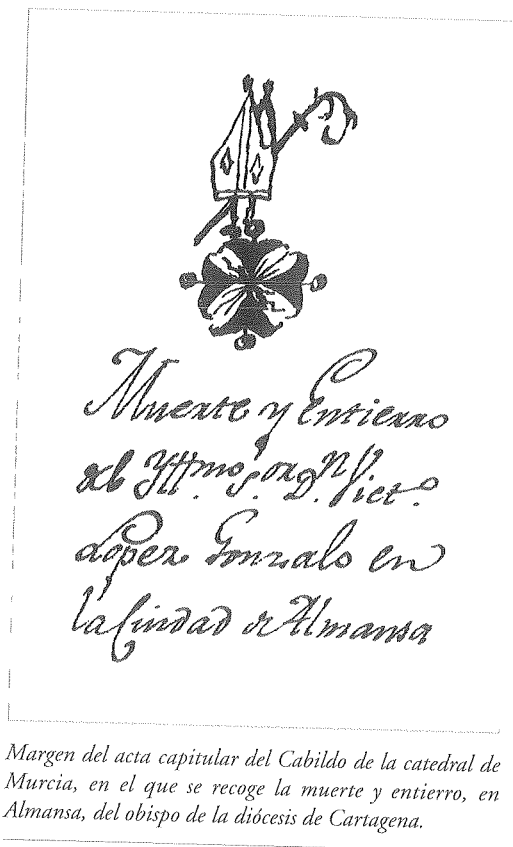 Muerte y Entierro
del Yttmo. S.or D.n Vict.o
Lopez Gonzalo en
la Ciudad de Almansa
Margen del acta capitular del Cabildo de la catedral de
Murcia, en el que se recoge la muerte y entierro, en
Almansa, del obispo de la diócesis de Cartagena.